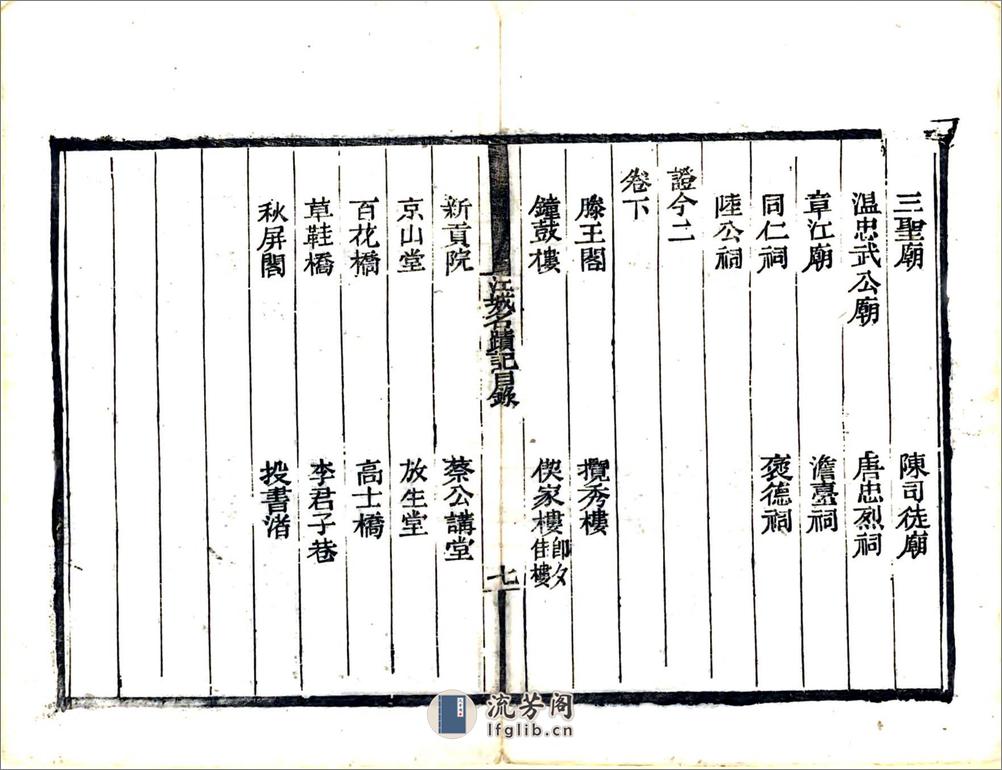 三聖廟 陳司徒廟
温忠武公廟 唐忠烈祠
章江廟 澹臺祠
同仁祠 褒德祠
陸公祠
證今二
卷下
滕王閣 攬秀樓
鐘鼓樓 偰家樓即夕佳樓
江城名蹟記目錄 七
新貢院 蔡公講堂
京山堂 放生堂
百花橋 高士橋
草鞋橋 李君子巷
秋屏閣 投書渚
流芳阁
lfglib.cn